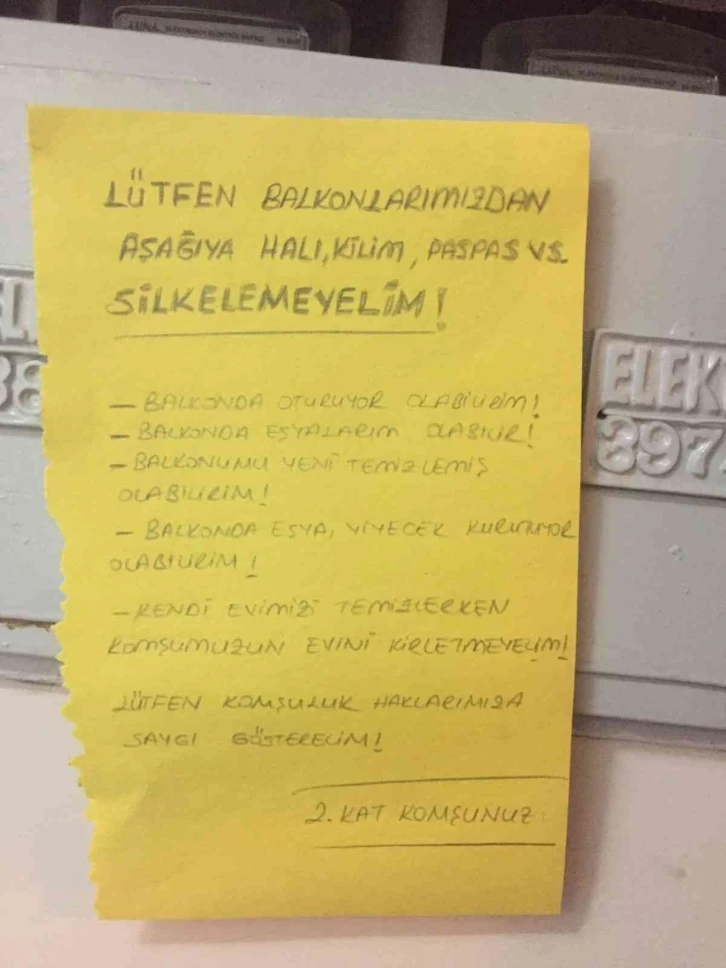 LÜTFEN BALKONLARIMIZDAN
AŞAĞIYA HALI, KİLİM, PASPAS VS.
SİLKELEMEYELİM!
– BALKONDA OTURUYOR OLABİLİRİM!
– BALKONDA EŞYALARIM OLABİLİR!
– BALKONUMU YENİ TEMİZLEMİŞ
OLABİLİRİM!
– BALKONDA EŞYA, YİYECEK KURUTUYOR
OLABİLİRİM!
– KENDİ EVİMİZİ TEMİZLERKEN
KOMŞUMUZUN EVİNİ KİRLETMEYELİM!
LÜTFEN KOMŞULUK HAKLARIMIZA
SAYGI GÖSTERELİM!
2. KAT KOMŞUNUZ
ELEK
3974